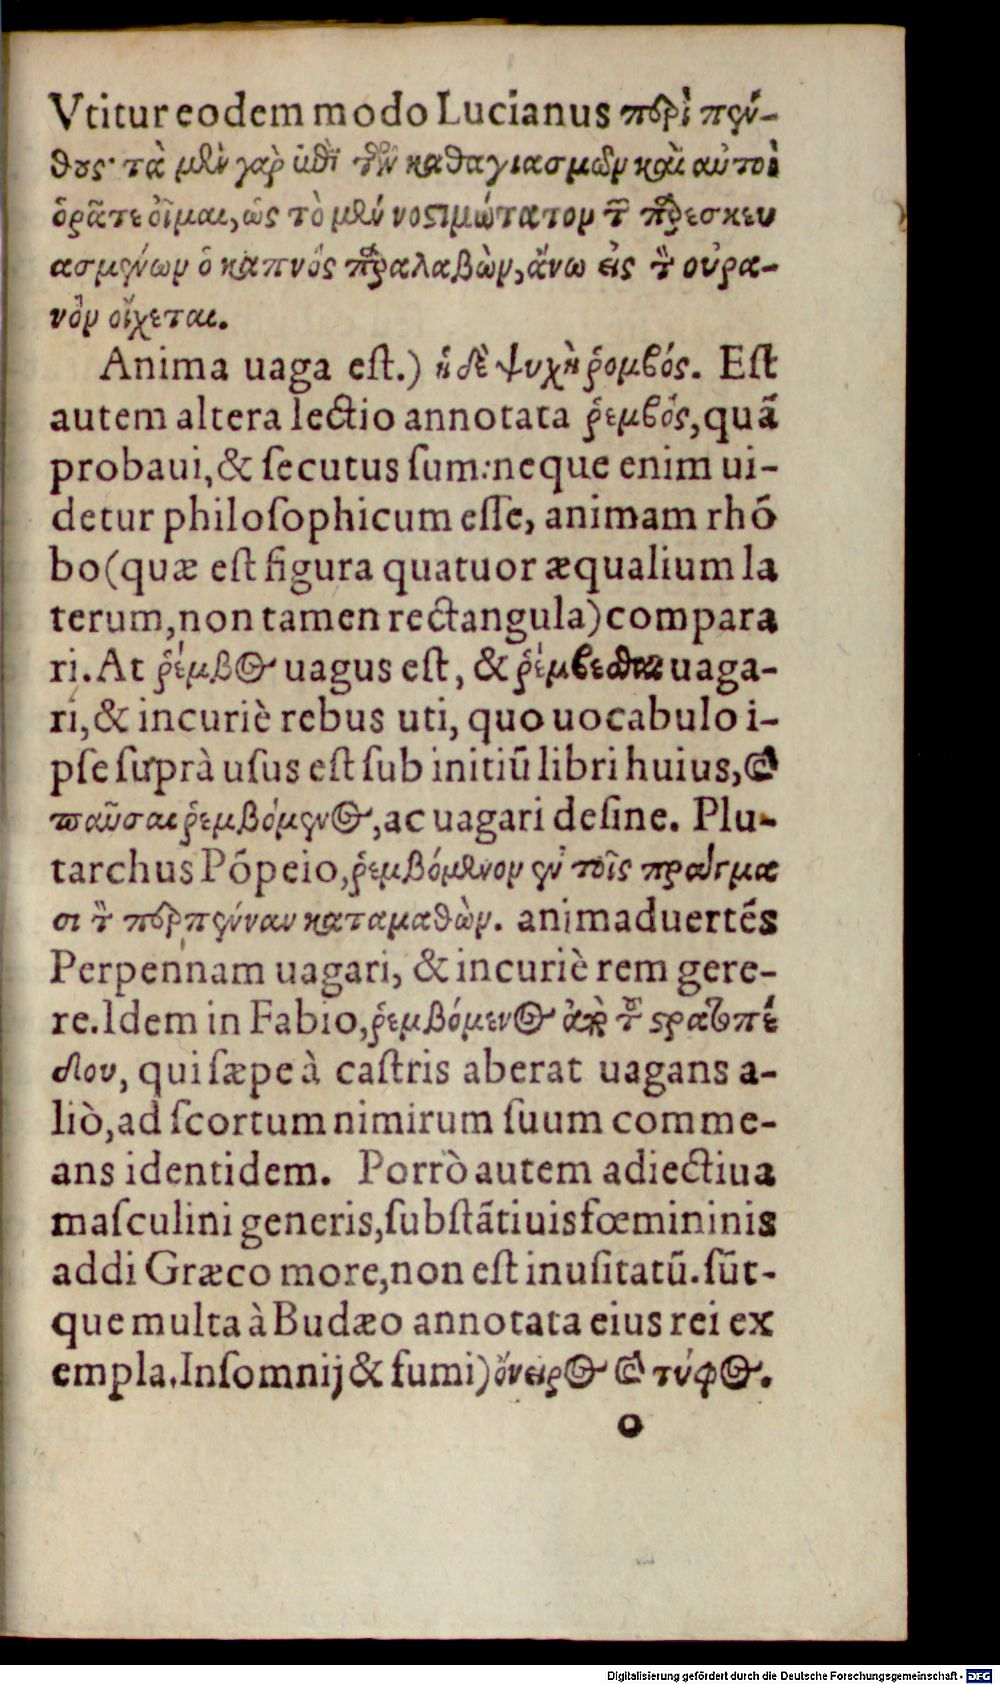 Vtitur eodem modo Lucianus περὶ πέν-
θους· τὰ μὲν γὰρ ἐπὶ τῶν καθαγιασμῶν καὶ αὐτοὶ
ὁρᾶτε οἶμαι, ὡς τὸ μὲν νοςιμώτατον τῶν παρεσκευ
ασμένων ὁ καπνὸς παραλαβὼν, ἄνω εἰς τὸν οὐρα-
νὸν οἴχεται.
Anima uaga eſt.) ἡ δὲ ψυχὴ ῥομβός. Eſt
autem altera lectio annotata ῥεμβὸς, quā
probaui, & ſecutus ſum: neque enim ui-
detur philoſophicum eſſe, animam rhō
bo (quæ eſt figura quatuor æqualium la
terum, non tamen rectangula) compara
ri. At ῥέμβος uagus eſt, & ῥέμβεσθαι uaga-
ri, & incuriè rebus uti, quo uocabulo i-
pſe ſuprà uſus eſt ſub initiū libri huius, καὶ
παῦσαι ῥεμβόμενος, ac uagari deſine. Plu-
tarchus Pōpeio, ῥεμβόμενον ἐν τοῖς πράγμα
σι τὸν περπένναν καταμαθὼν. animaduertēs
Perpennam uagari, & incuriè rem gere-
re. Idem in Fabio, ῥεμβόμενος ἀπὸ τοῦ ςρατοπέ
δου, qui ſæpe à caſtris aberat uagans a-
liò, ad ſcortum nimirum ſuum comme-
ans identidem. Porrò autem adiectiua
maſculini generis, ſubſtātiuis fœmininis
addi Græco more, non eſt inuſitatū. ſūt-
que multa à Budæo annotata eius rei ex
empla. Inſomnij & fumi) ὄνειρος καὶ τύφος.
o
Digitalisierung gefördert durch die Deutsche Forschungsgemeinschaft - DFG